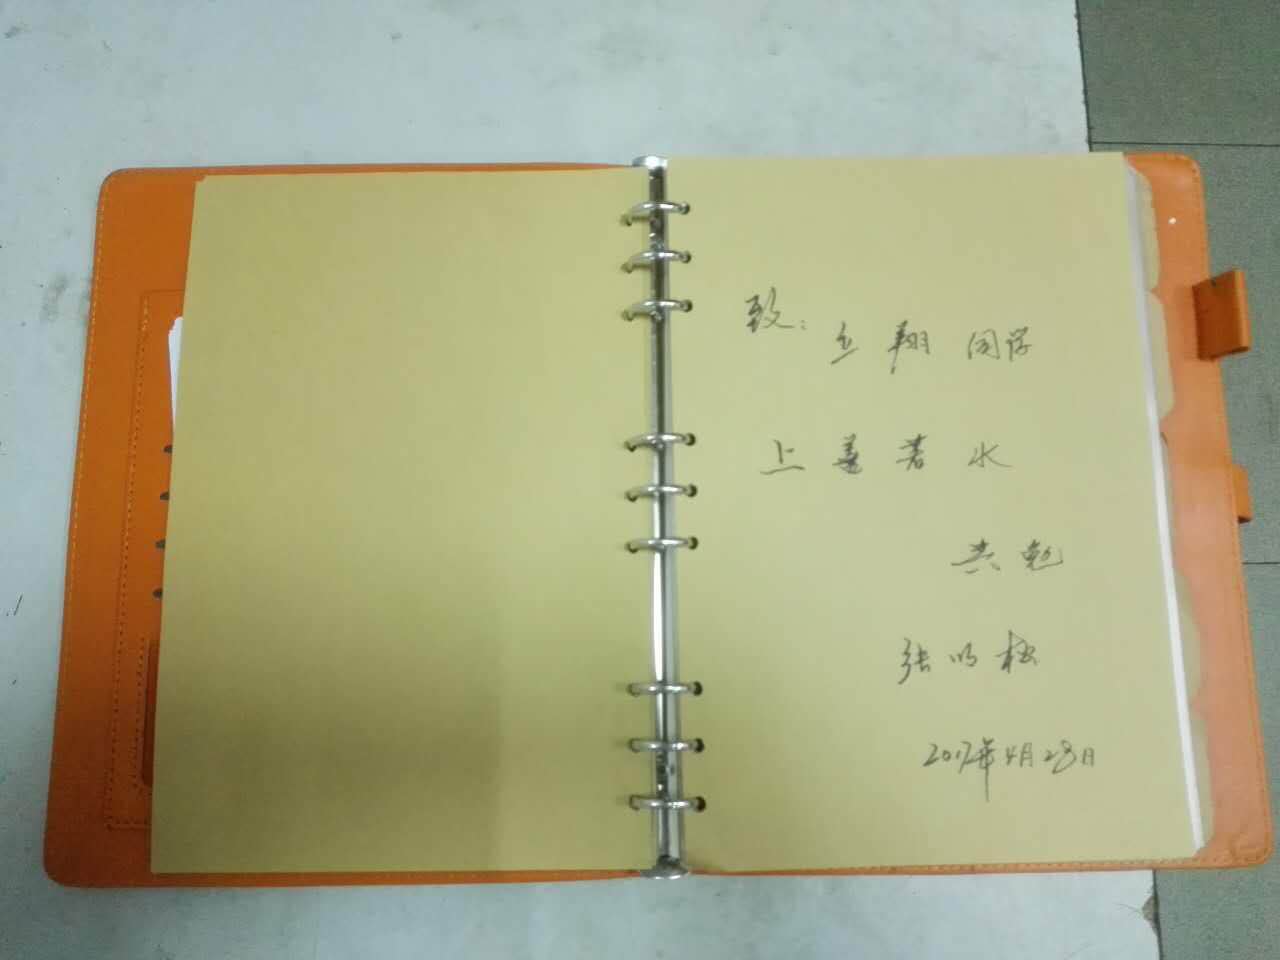 致：立翔同学
上善若水
共勉
张明松
2017年4月28日